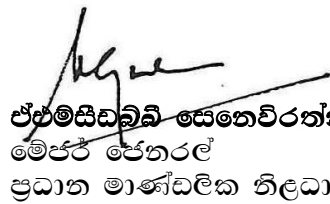 ඒඑම්සීඩබ්බී සෙනෙවිරත්න
මේජර් ජෙනරල්
ප්‍රධාන මාණ්ඩලික නිලධා